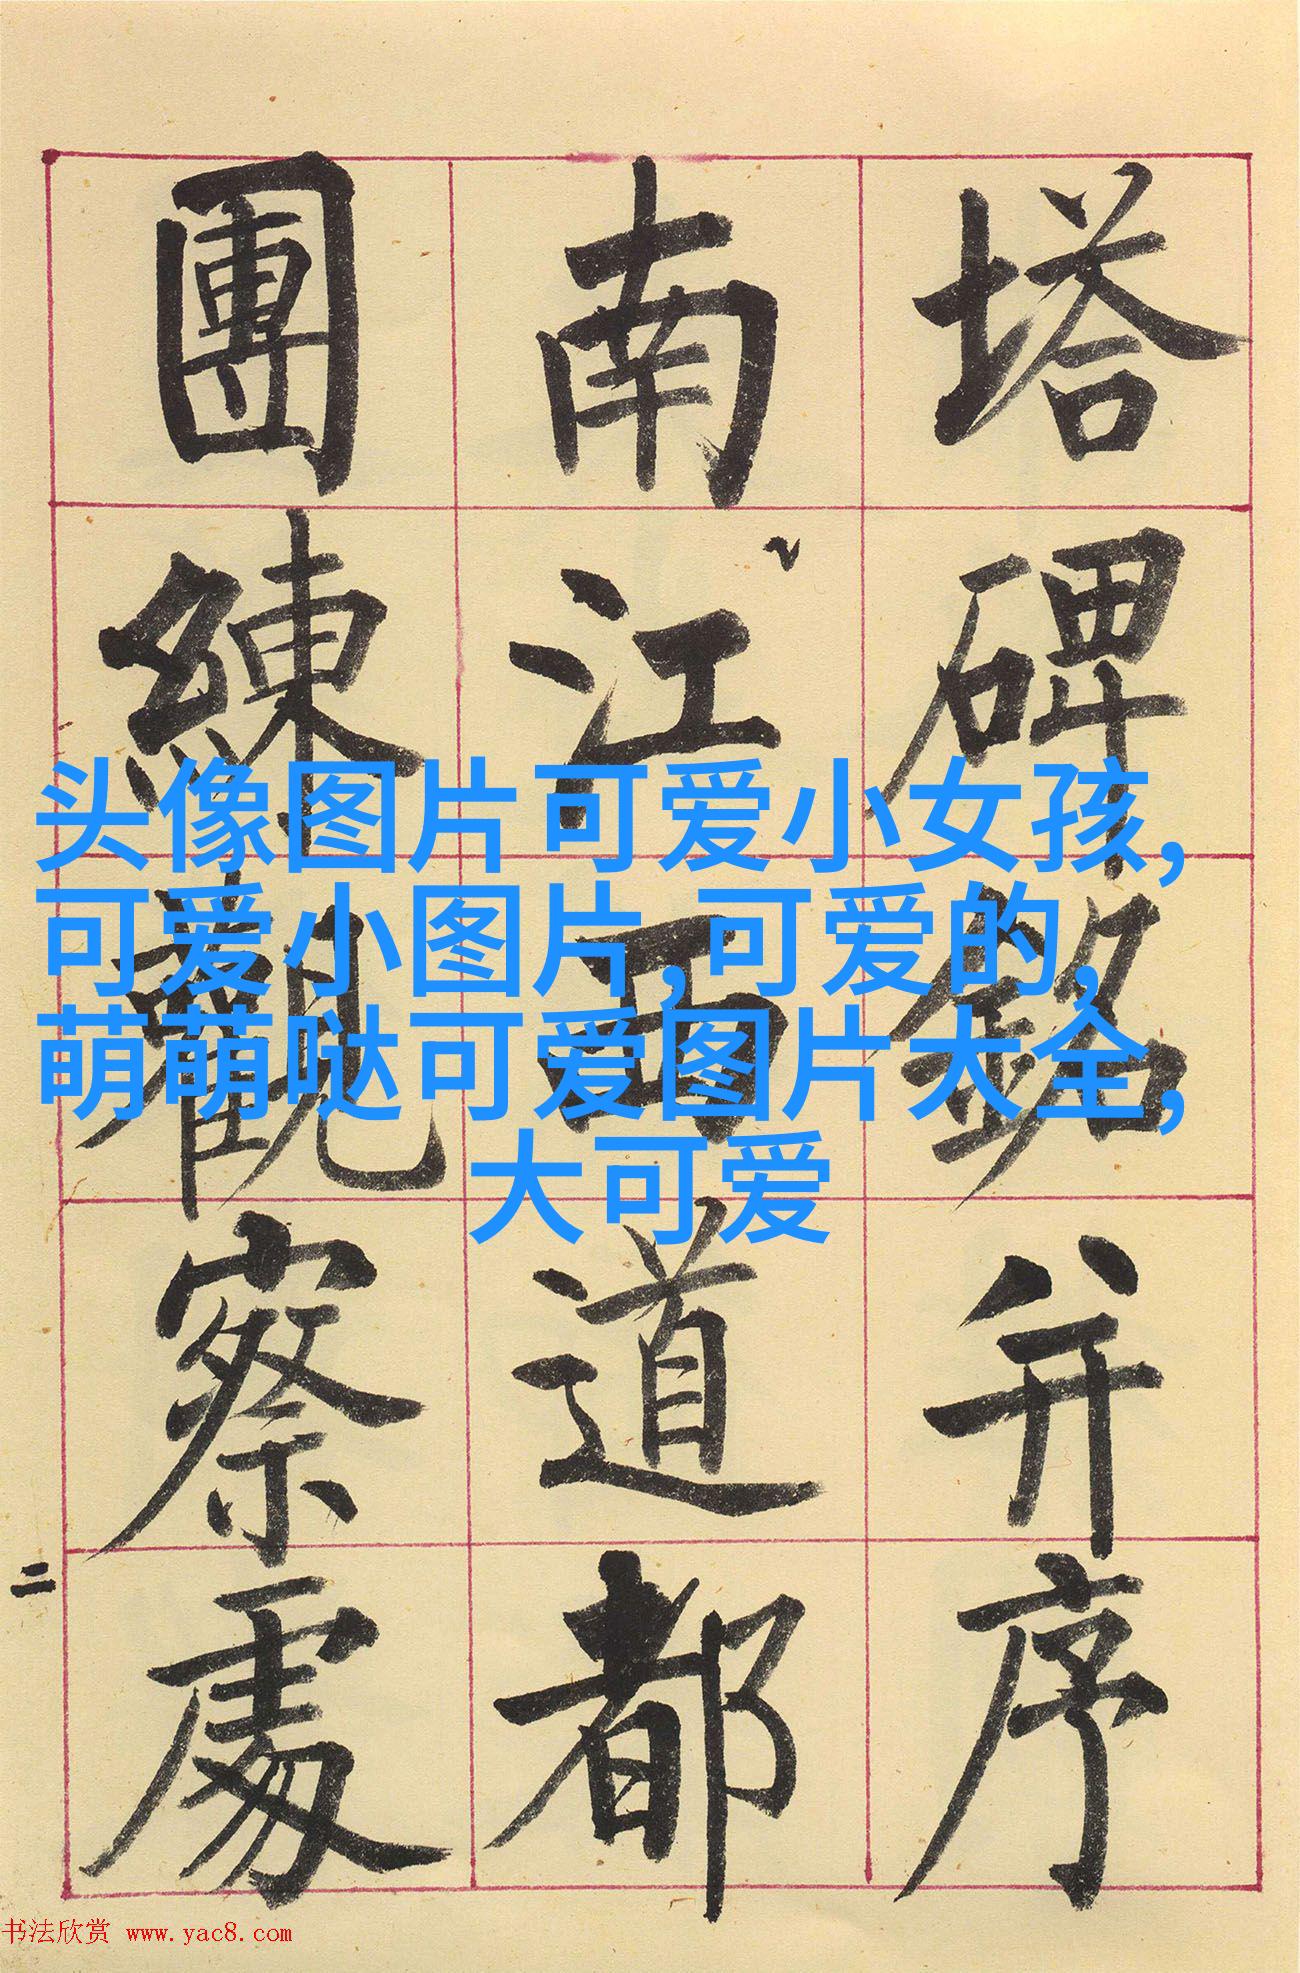 塔碑銘并序
南江西道都
團練觀察處
二
头像图片可爱小女孩,
可爱小图片,可爱的,
萌萌哒可爱图片大全,
大可爱
书法欣赏 www.yac8.com